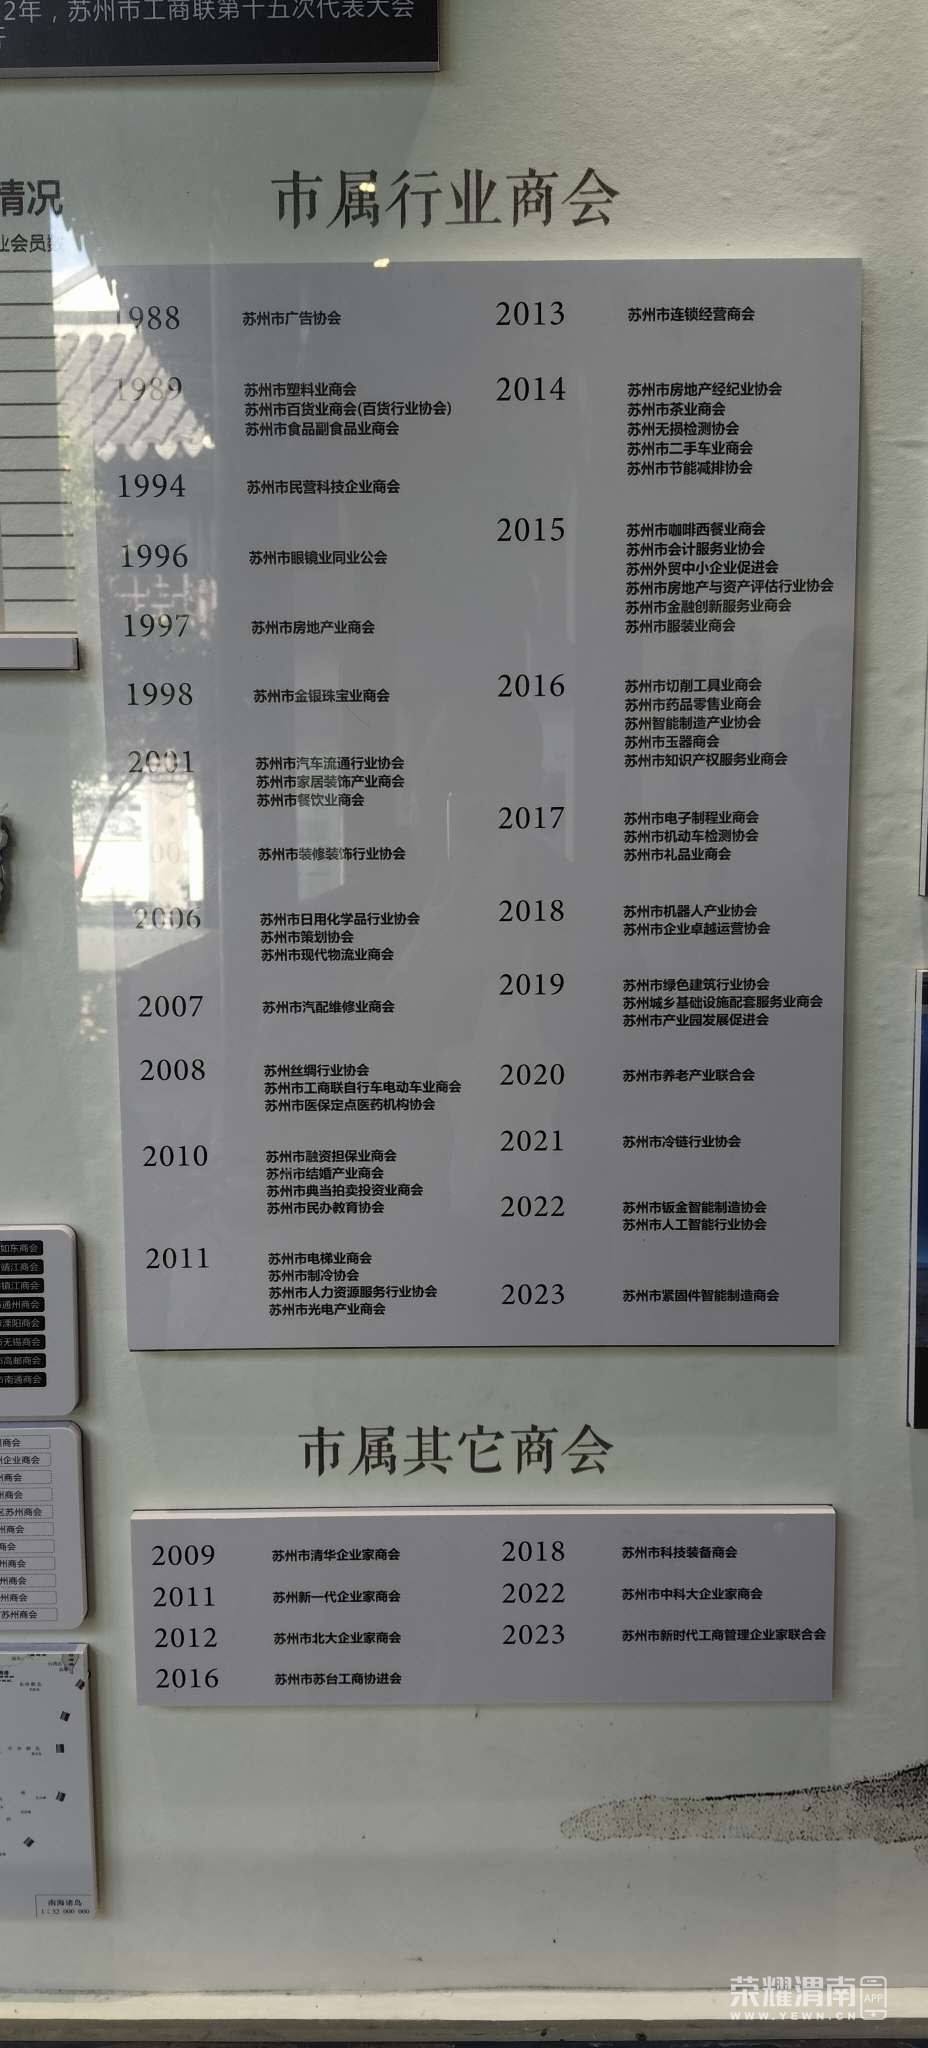 2年，苏州市工商联第十五次代表大会
情况
业会员数
市属行业商会
1988
苏州市广告协会
1989
苏州市塑料业商会
苏州市百货业商会(百货行业协会)
苏州市食品副食品业商会
1994
苏州市民营科技企业商会
1996
苏州市眼镜业同业公会
1997
苏州市房地产业商会
1998
苏州市金银珠宝业商会
2001
苏州市汽车流通行业协会
苏州市家居装饰产业商会
苏州市餐饮业商会
苏州市装修装饰行业协会
2006
苏州市日用化学品行业协会
苏州市策划协会
苏州市现代物流业商会
2007
苏州市汽配维修业商会
2008
苏州丝绸行业协会
苏州市工商联自行车电动车业商会
苏州市医保定点医药机构协会
2010
苏州市融资担保业商会
苏州市结婚产业商会
苏州市典当拍卖投资业商会
苏州市民办教育协会
2011
苏州市电梯业商会
苏州市制冷协会
苏州市人力资源服务行业协会
苏州市光电产业商会
2013
苏州市连锁经营商会
2014
苏州市房地产经纪业协会
苏州市茶业商会
苏州无损检测协会
苏州市二手车业商会
苏州市节能减排协会
2015
苏州市咖啡西餐业商会
苏州市会计服务业协会
苏州外贸中小企业促进会
苏州市房地产与资产评估行业协会
苏州市金融创新服务业商会
苏州市服装业商会
2016
苏州市切削工具业商会
苏州市药品零售业商会
苏州智能制造产业协会
苏州市玉器商会
苏州市知识产权服务业商会
2017
苏州市电子制程业商会
苏州市机动车检测协会
苏州市礼品业商会
2018
苏州市机器人产业协会
苏州市企业卓越运营协会
2019
苏州市绿色建筑行业协会
苏州城乡基础设施配套服务业商会
苏州市产业园发展促进会
2020
苏州市养老产业联合会
2021
苏州市冷链行业协会
2022
苏州市钣金智能制造协会
苏州市人工智能行业协会
2023
苏州市紧固件智能制造商会
如东商会
靖江商会
镇江商会
通州商会
溧阳商会
无锡商会
高邮商会
南通商会
商会
企业商会
州商会
州商会
区苏州商会
州商会
商会
州商会
州商会
州商会
苏州商会
市属其它商会
2009
苏州市清华企业家商会
2011
苏州新一代企业家商会
2012
苏州市北大企业家商会
2016
苏州市苏台工商协进会
2018
苏州市科技装备商会
2022
苏州市中科大企业家商会
2023
苏州市新时代工商管理企业家联合会
南海诸岛
1：32 000 000
荣耀渭南 APP
WWW.YEWN.CN